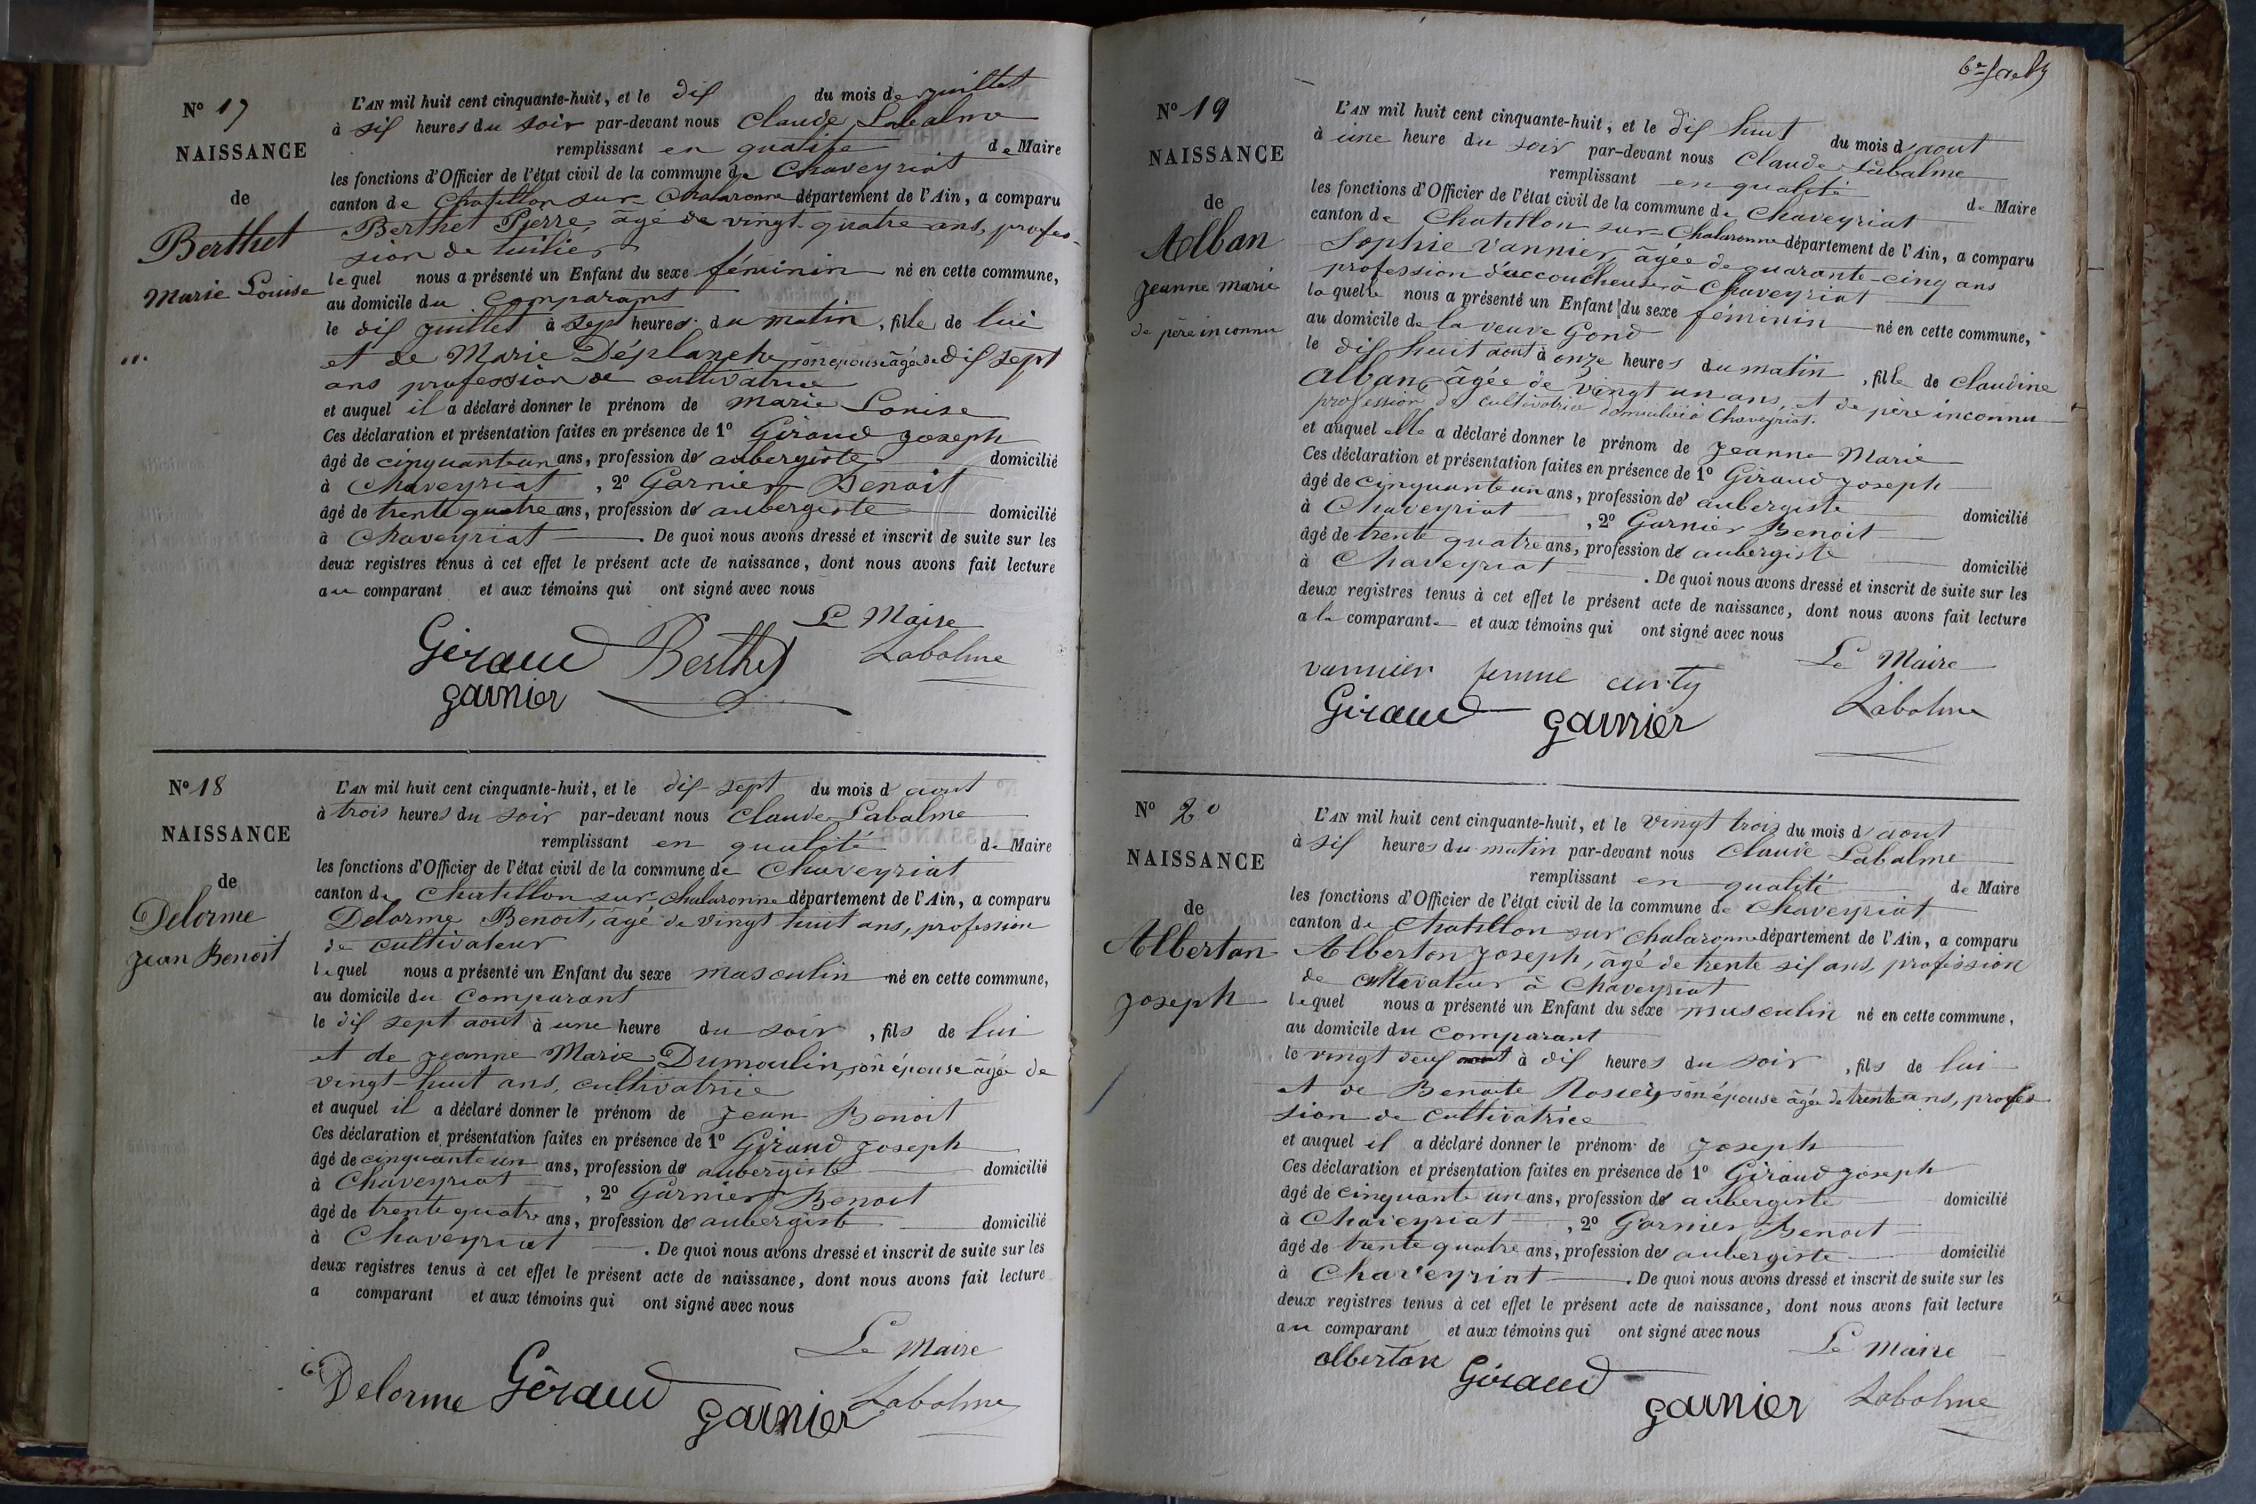 N° 17
NAISSANCE
de
Berthet
Marie Louise
L'AN mil huit cent cinquante-huit, et le dix du mois de juillet
à six heures du soir par-devant nous Claude Labalme
remplissant en qualité de Maire
les fonctions d'Officier de l'état civil de la commune de Chaveyriat
canton de Chatillon sur Chalaronne département de l'Ain, a comparu
Berthet Pierre, âgé de vingt-quatre ans, profes-
sion de tuilier
lequel nous a présenté un Enfant du sexe féminin né en cette commune,
au domicile du comparant
le dix juillet à sept heures du matin, fille de lui
et de Marie Déplanche son épouse âgée de dix sept
ans profession de cultivatrice
et auquel il a déclaré donner le prénom de Marie Louise
Ces déclaration et présentation faites en présence de 1° Giraud Joseph
âgé de cinquante un ans, profession de aubergiste domicilié
à Chaveyriat, 2° Garnier Benoit
âgé de trente quatre ans, profession de aubergiste domicilié
à Chaveyriat. De quoi nous avons dressé et inscrit de suite sur les
deux registres tenus à cet effet le présent acte de naissance, dont nous avons fait lecture
au comparant et aux témoins qui ont signé avec nous
Le Maire
Giraud Berthet Labalme
garnier
N° 18
NAISSANCE
de
Delorme
Jean Benoit
L'AN mil huit cent cinquante-huit, et le dix-sept du mois d'aout
à trois heures du soir par-devant nous Claude Labalme
remplissant en qualité de Maire
les fonctions d'Officier de l'état civil de la commune de Chaveyriat
canton de Chatillon sur Chalaronne département de l'Ain, a comparu
Delorme Benoit, âgé de vingt huit ans, profession
de cultivateur
lequel nous a présenté un Enfant du sexe masculin né en cette commune,
au domicile du comparant
le dix sept aout à une heure du soir, fils de lui
et de Jeanne Marie Dumoulin, son épouse âgée de
vingt-huit ans, cultivatrice
et auquel il a déclaré donner le prénom de Jean Benoit
Ces déclaration et présentation faites en présence de 1° Giraud Joseph
âgé de cinquante un ans, profession de aubergiste domicilié
à Chaveyriat, 2° Garnier Benoit
âgé de trente quatre ans, profession de aubergiste domicilié
à Chaveyriat. De quoi nous avons dressé et inscrit de suite sur les
deux registres tenus à cet effet le présent acte de naissance, dont nous avons fait lecture
a comparant et aux témoins qui ont signé avec nous
Le Maire
Delorme Giraud garnier Labalme
N° 19
NAISSANCE
de
Alban
Jeanne Marie
de père inconnu
L'AN mil huit cent cinquante-huit, et le dix huit du mois d'aout
à une heure du soir par-devant nous Claude Labalme
remplissant en qualité de Maire
les fonctions d'Officier de l'état civil de la commune de Chaveyriat
canton de Chatillon sur Chalaronne département de l'Ain, a comparu
Sophie Vannier, âgée de quarante-cinq ans
profession d'accoucheuse à Chaveyriat
laquelle nous a présenté un Enfant du sexe féminin né en cette commune,
au domicile de la veuve Gond
le dix huit aout à onze heures du matin, fille de Claudine
Alban, âgée de vingt un ans, et de père inconnu
profession de cultivatrice domiciliée à Chaveyriat.
et auquel elle a déclaré donner le prénom de Jeanne Marie
Ces déclaration et présentation faites en présence de 1° Giraud Joseph
âgé de cinquante un ans, profession de aubergiste
à Chaveyriat, 2° Garnier Benoit domicilié
âgé de trente quatre ans, profession de aubergiste
à Chaveyriat. De quoi nous avons dressé et inscrit de suite sur les domicilié
deux registres tenus à cet effet le présent acte de naissance, dont nous avons fait lecture
a la comparante et aux témoins qui ont signé avec nous
Le Maire
vannier femme curty
Giraud garnier Labalme
N° 20
NAISSANCE
de
Alberton
Joseph
L'AN mil huit cent cinquante-huit, et le vingt trois du mois d'aout
à six heures du matin par-devant nous Claude Labalme
remplissant en qualité de Maire
les fonctions d'Officier de l'état civil de la commune de Chaveyriat
canton de Chatillon sur Chalaronne département de l'Ain, a comparu
Alberton Joseph, âgé de trente six ans, profession
de cultivateur à Chaveyriat
lequel nous a présenté un Enfant du sexe masculin né en cette commune,
au domicile du comparant
le vingt deux aout à dix heures du soir, fils de lui
et de Benoite son épouse âgée de trente ans, profes
sion de cultivatrice
et auquel il a déclaré donner le prénom de Joseph
Ces déclaration et présentation faites en présence de 1° Giraud Joseph
âgé de cinquante un ans, profession de aubergiste domicilié
à Chaveyriat, 2° Garnier Benoit
âgé de trente quatre ans, profession de aubergiste domicilié
à Chaveyriat. De quoi nous avons dressé et inscrit de suite sur les
deux registres tenus à cet effet le présent acte de naissance, dont nous avons fait lecture
au comparant et aux témoins qui ont signé avec nous
Le Maire
alberton Giraud garnier Labalme